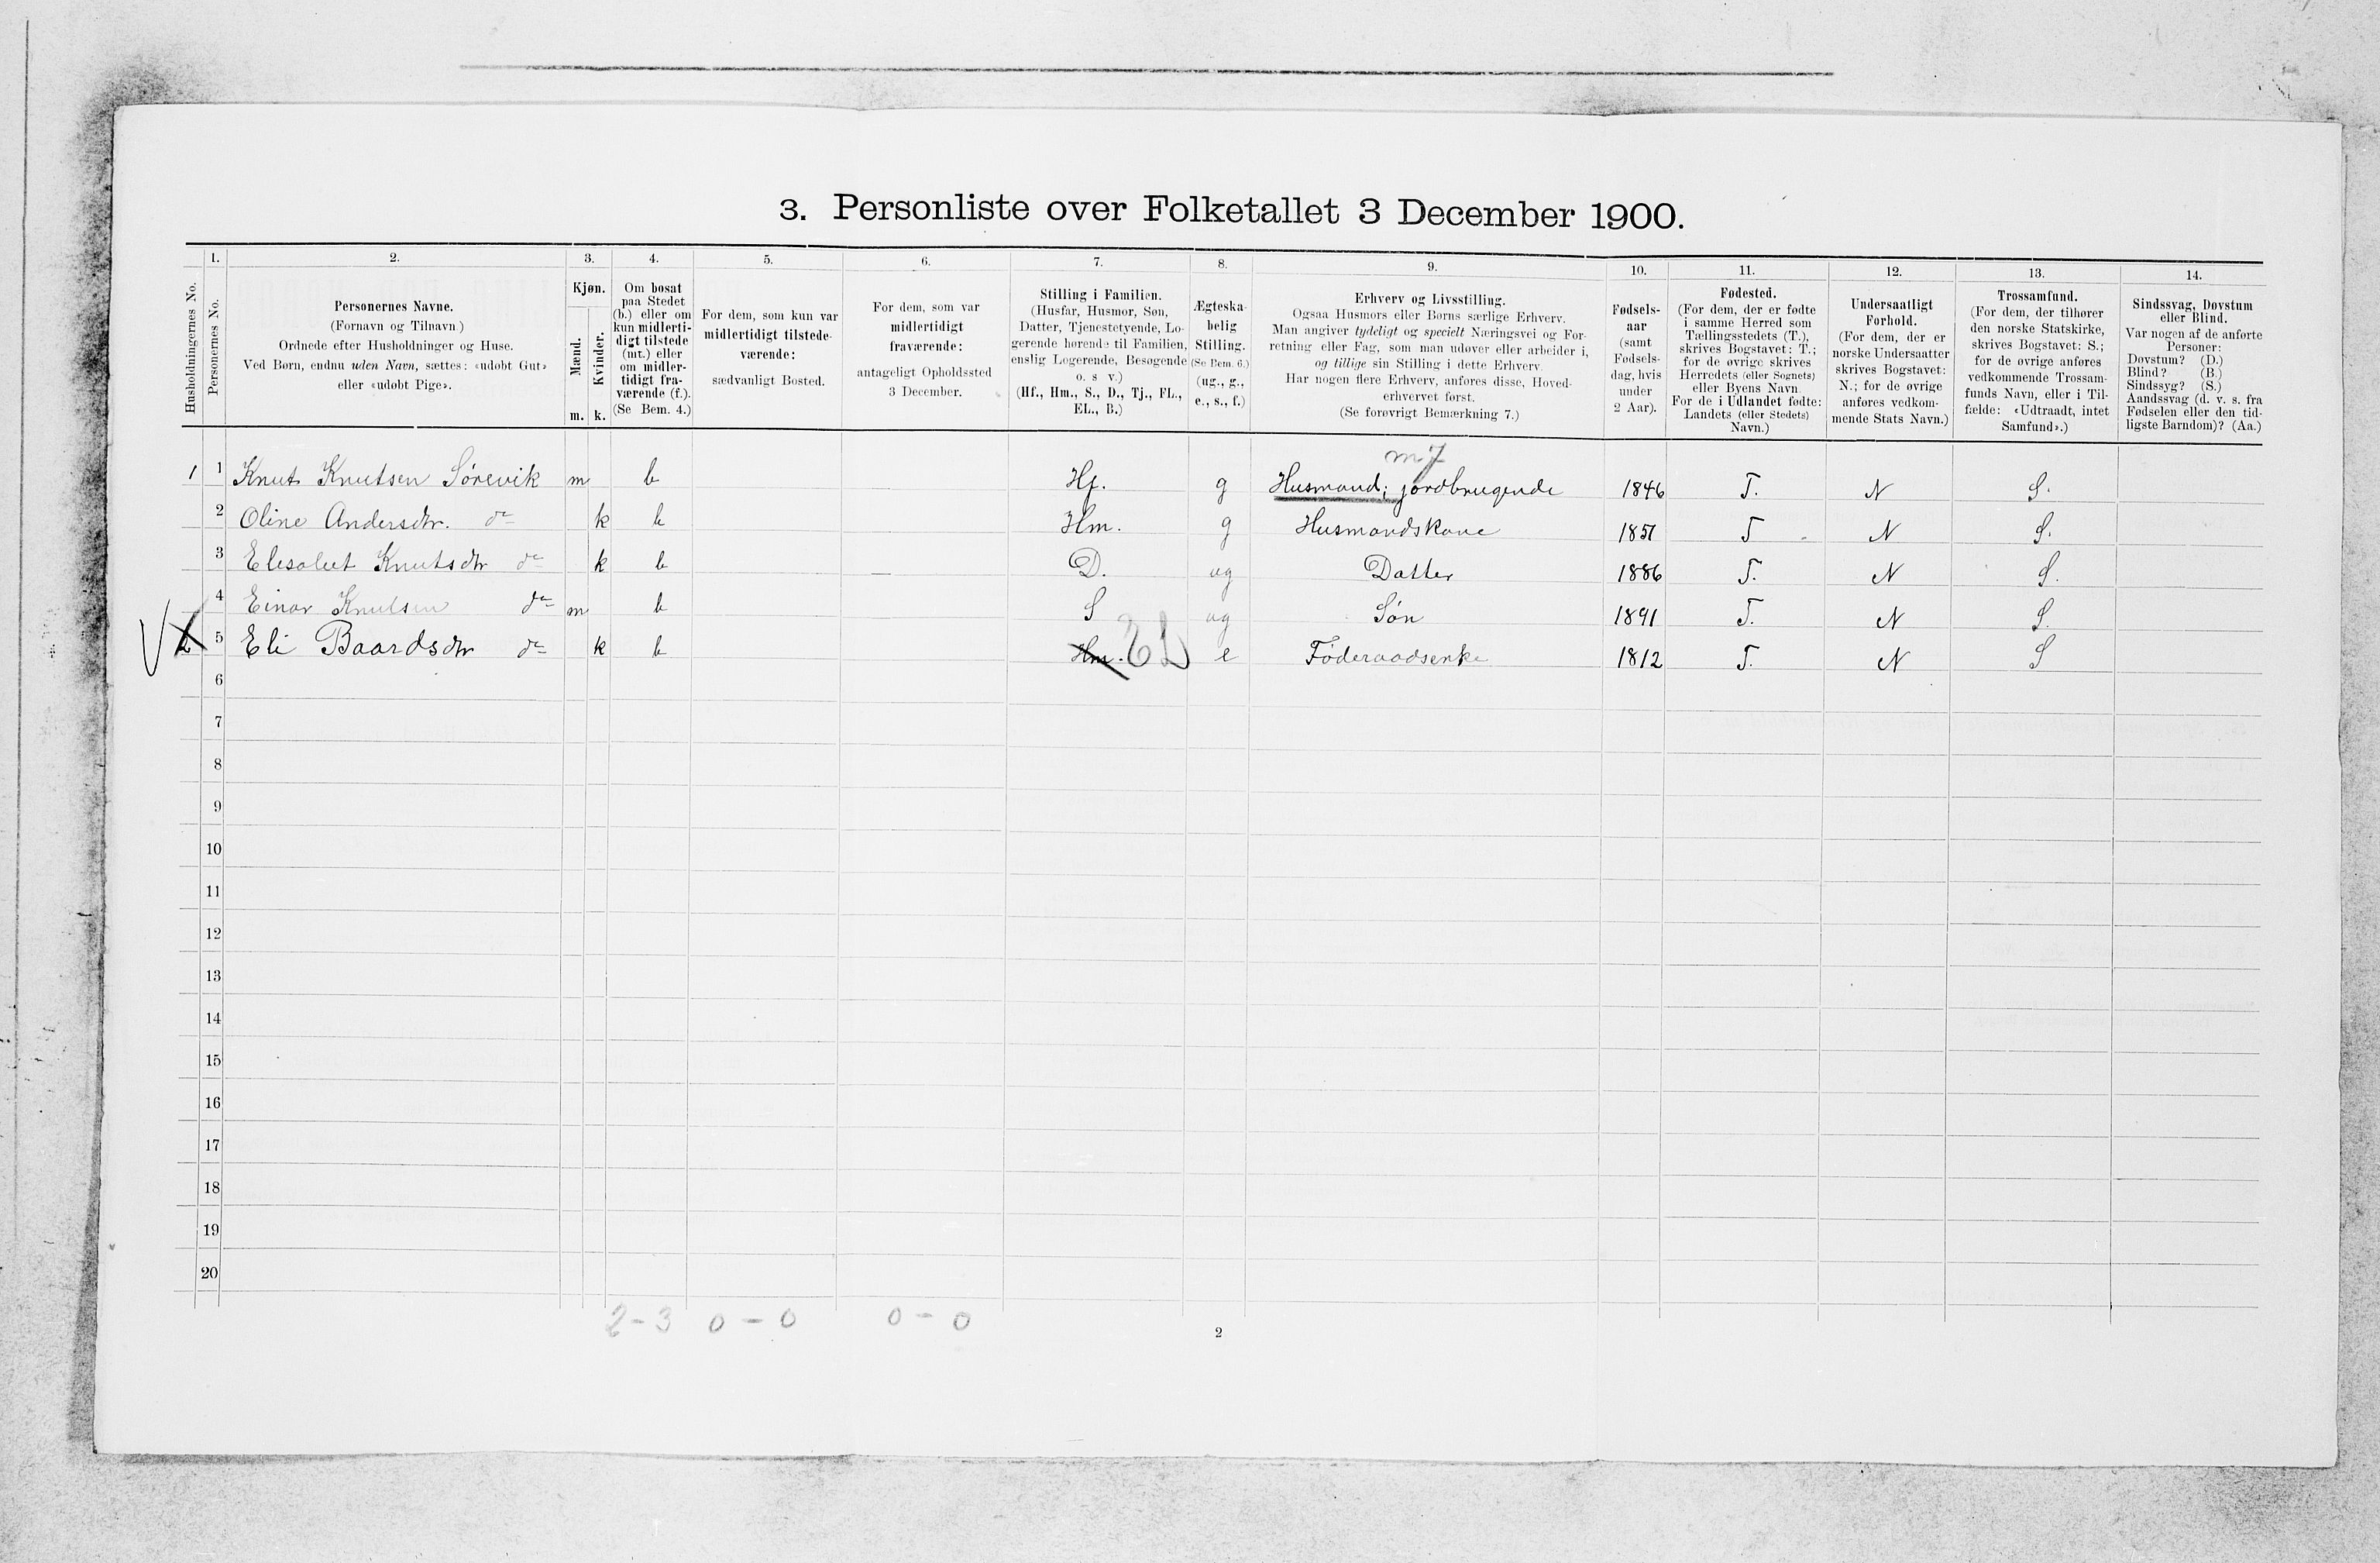 3. Personliste over Folketallet 3 December 1900.
Husholdningernes No.
1.
Personernes No.
2.
Personernes Navne.
(Fornavn og Tilnavn.)
Ordnede efter Husholdninger og Huse.
Ved Børn, endnu uden Navn, sættes: «udøbt Gut»
eller «udøbt Pige».
3.
Kjøn.
Mænd.
Kvinder.
m.
k.
4.
Om bosat
paa Stedet
(b.) eller om
kun midlerti-
digt tilstede
(mt.) eller
om midler-
tidigt fra-
værende (f.).
(Se Bem. 4.)
5.
For dem, som kun var
midlertidigt tilstede-
værende:
sædvanligt Bosted.
6.
For dem, som var
midlertidigt
fraværende:
antageligt Opholdssted
3 December.
7.
Stilling i Familien.
(Husfar, Husmor, Søn,
Datter, Tjenestetyende, Lo-
gerende hørende til Familien,
enslig Logerende, Besøgende
o. s. v.)
(Hf., Hm., S., D., Tj., FL.,
EL., B.)
8.
Ægteska-
belig
Stilling.
(Se Bem. 6.)
(ug., g.,
e., s., f.)
9.
Erhverv og Livsstilling.
Ogsaa Husmors eller Børns særlige Erhverv.
Man angiver tydeligt og specielt Næringsvei og For-
retning eller Fag, som man udøver eller arbeider i,
og tillige sin Stilling i dette Erhverv.
Har nogen flere Erhverv, anføres disse, Hoved-
erhvervet først.
(Se forøvrigt Bemærkning 7.)
10.
Fødsels-
aar
(samt
Fødsels-
dag, hvis
under
2 Aar).
11.
Fødested.
(For dem, der er fødte
i samme Herred som
Tællingsstedets (T.),
skrives Bogstavet: T.;
for de øvrige skrives
Herredets (eller Sognets)
eller Byens Navn.
For de i Udlandet fødte:
Landets (eller Stedets)
Navn.)
12.
Undersaatligt
Forhold.
(For dem, der er
norske Undersaatter
skrives Bogstavet:
N.; for de øvrige
anføres vedkom-
mende Stats Navn.)
13.
Trossamfund.
(For dem, der tilhører
den norske Statskirke,
skrives Bogstavet: S.;
for de øvrige anføres
vedkommende Trossam-
funds Navn, eller i Til-
fælde: «Udtraadt, intet
Samfund».)
14.
Sindssvag, Døvstum
eller Blind.
Var nogen af de anførte
Personer:
Døvstum? (D.)
Blind? (B.)
Sindssyg? (S.)
Aandssvag (d. v. s. fra
Fødselen eller den tid-
ligste Barndom)? (Aa.)
m7
1 1 Knut Knutsen Sørevik m b Hf. g Husmand; jordbrugende 1846 T. N S.
2 Oline Andersdtr. do k b Hm. g Husmandskone 1851 T N S.
3 Elesabet Knutsdtr do k b D. ug Datter 1886 T. N S.
4 Einar Knutsen do m b S ug Søn 1891 T. N S.
2 5 Eli Baardsdtr do k b Hm. EL e Føderaadsenke 1812 T. N S
6
7
8
9
10
11
12
13
14
15
16
17
18
19
20
2-3 0-0 0-0
2